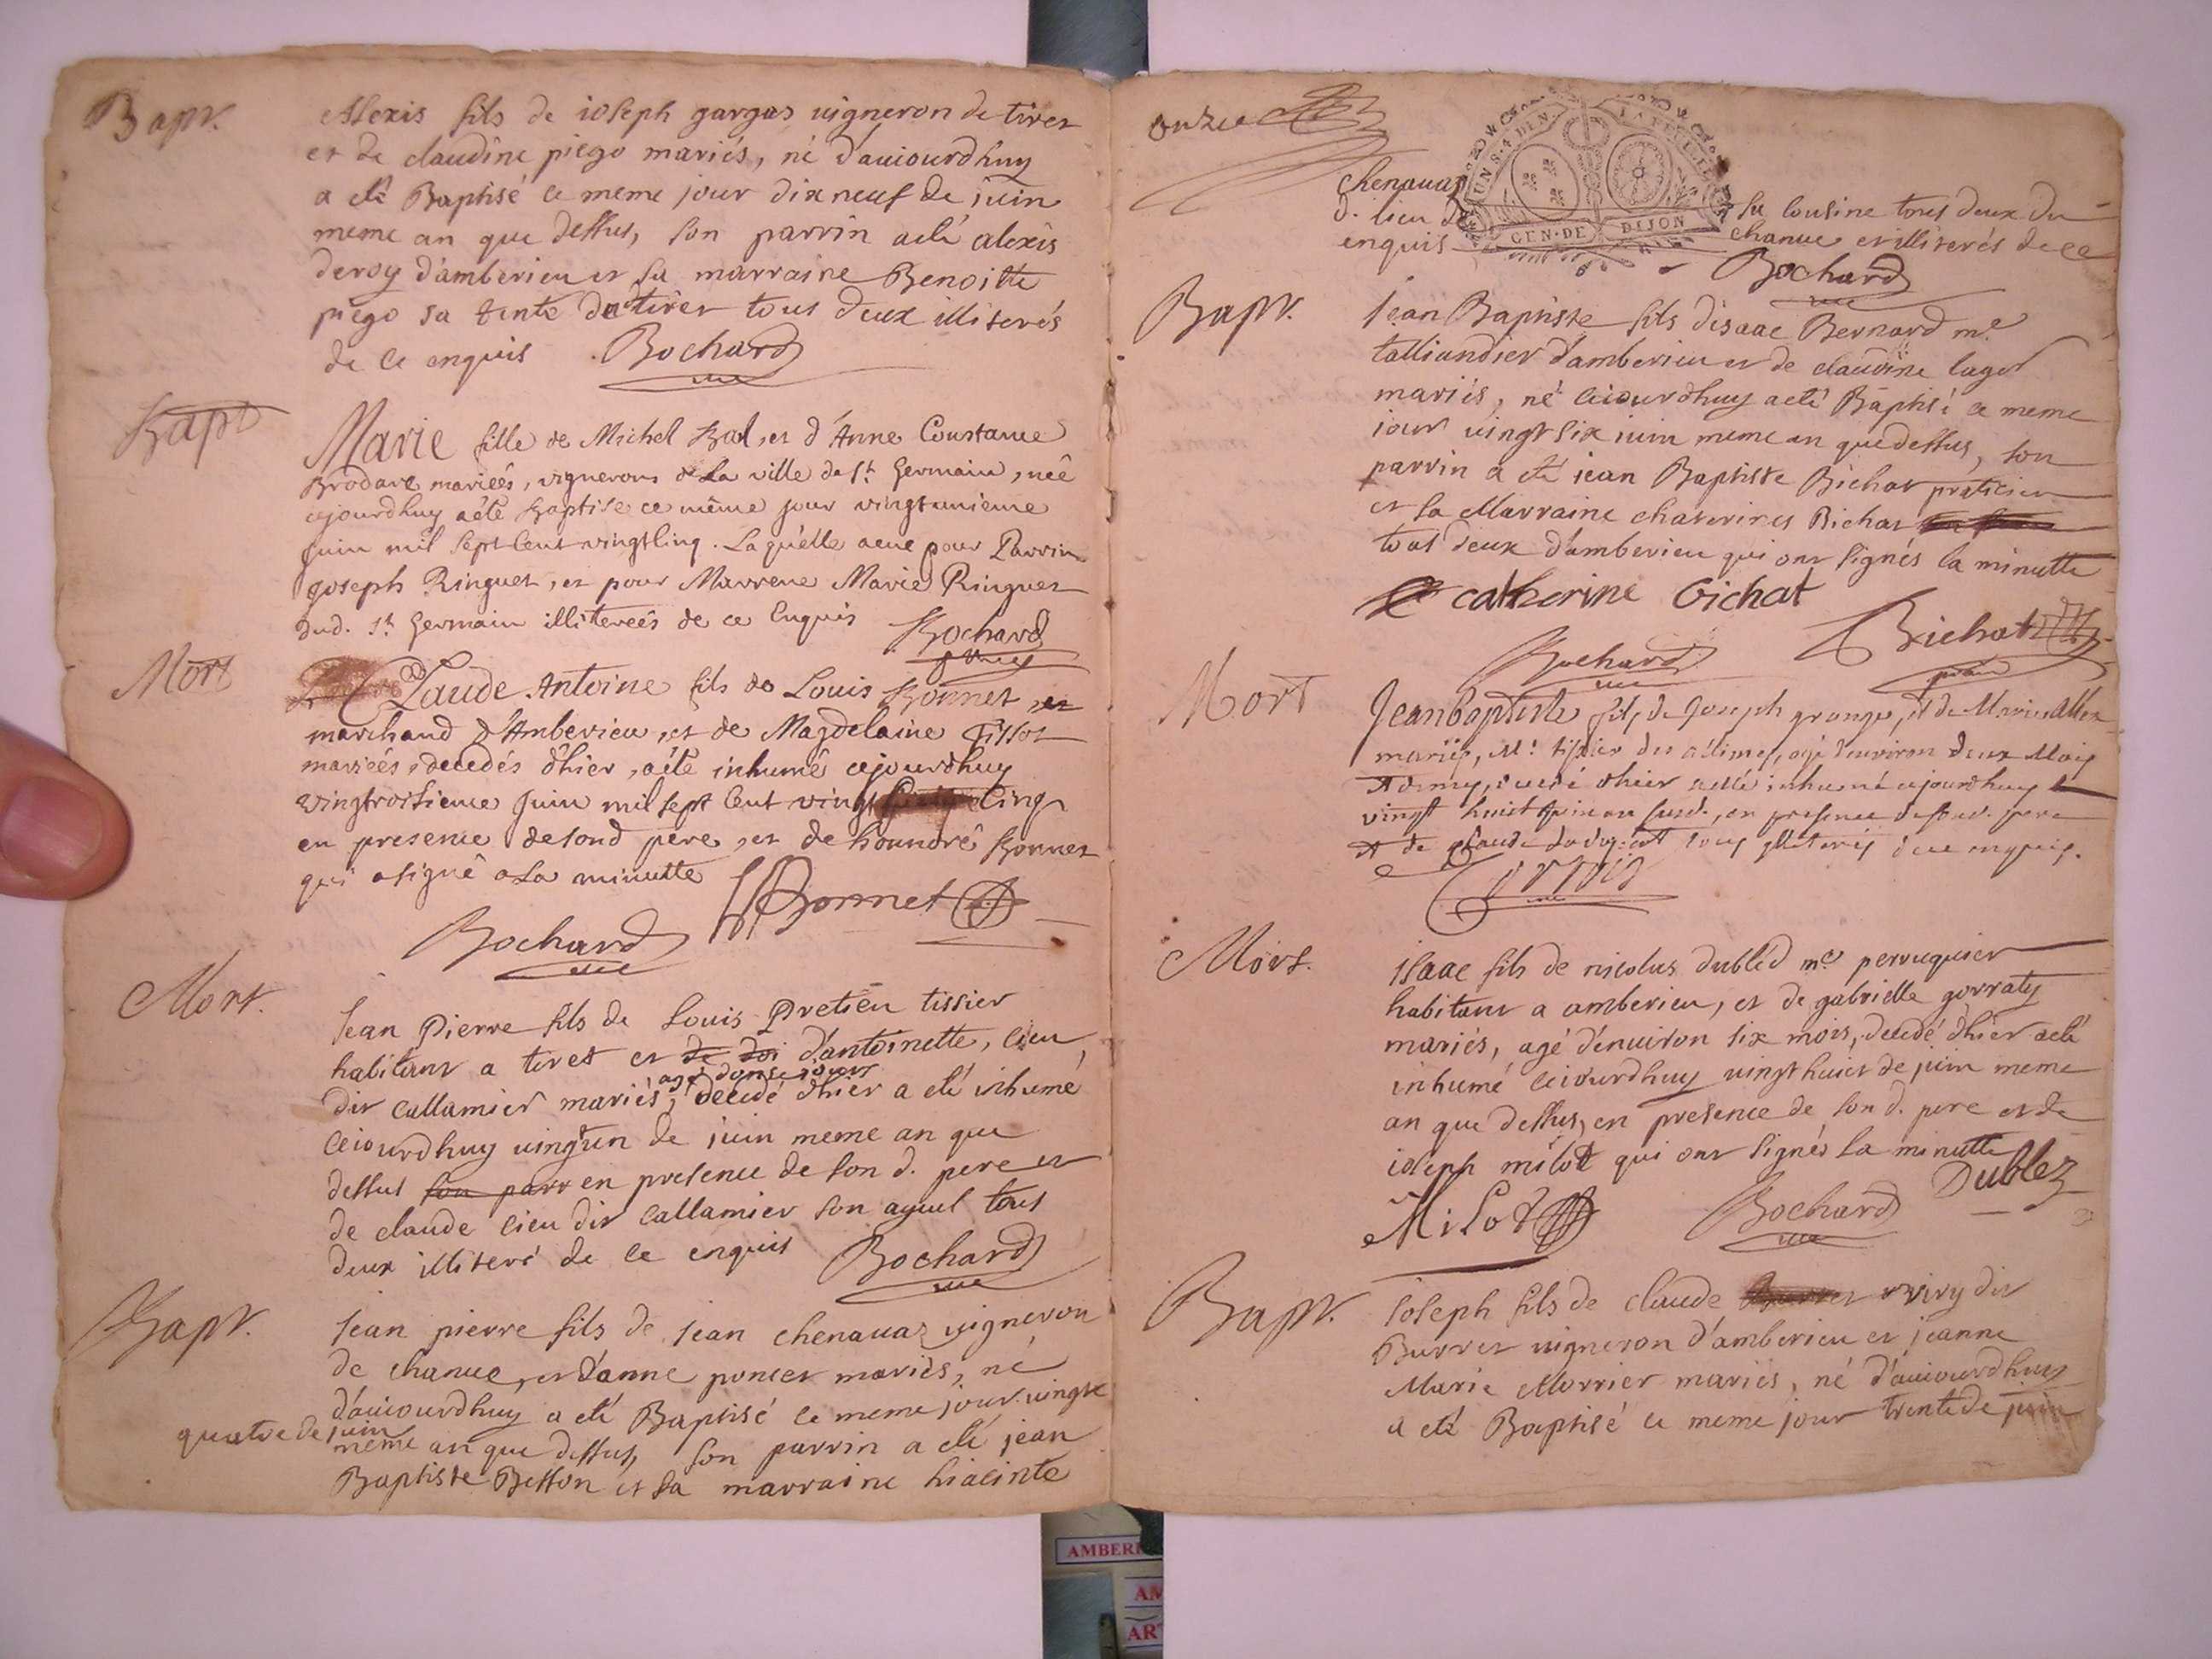 Bapt.
Alexis fils de ioseph gargas uigneron de tiret
et de claudine piego mariés, né d'auiourdhuy
a eté Baptisé ce meme jour dix neuf de juin
meme an que dessus, son parrin a eté alexis
deroy d'amberieu et sa marraine Benoitte
piego sa tente de tiret tous deux illiterés
de ce enquis Bochard
Bapt
Marie fille de Michel Bal, et d'Anne Constance
Brodare mariéés, vignerons de La ville de St. Germain, néé
cejourdhuy a été baptisé ce même jour vingtunieme
Juin mil sept cent vingtcinq. Laquélle a eue pour Parrin
Joseph Ringuet, et pour Marrene Marie Ringuet
dud. St. Germain illitereés de ce Enquis Bochard
Mort
Claude Antoine fils de Louis Bonnet, et
marchand d'Amberieu, et de Magdelaine Tissot
mariéés, decedés d'hier, a été inhumé cejourdhuy
vingtroisieme Juin mil sept Cent vingt cinq
en presence de sond pere, et de honnoré Bonnet
qui a signé a La minutte Bonnet
Bochard
Mort.
Jean Pierre fils de Louis Pretieu tissier
habitant a tiret et de d'antoinette, lieu,
agé donse jours
dit callamier mariés, decedé d'hier a eté inhumé
ceiourdhuy uingt un de juin meme an que
dessus son parr en presence de son d. pere et
de claude lieu dit callamier son ayeul tous
deux illiteré de ce enquis Bochard
Bapt.
Jean pierre fils de Jean chenauaz uigneron
de chanue, et d'anne poncet mariés, né
d'auiourdhuy a eté Baptisé ce meme jour uingt
quatre de juin
meme an que dessus, son parrin a eté jean
Baptiste Besson et sa marraine hiacinte
onze
UN S. 4 DEN. LA FEUILLE
GEN. DE DIJON
chenauaz sa cousine tous deux du
d. lieu de chanue et illiterés de ce
enquis Bochard
Bapt.
Jean Baptiste fils d'isaac Bernard me.
talliandier d'amberieu et de claudine luget
mariés, né ceiourdhuy a eté Baptisé ce meme
jour uingt six iuin meme an que dessus, son
parrin a eté jean Baptiste Bichat praticien
et sa Marraine chaterines Bichat
tous deux d'amberieu qui ont signés la minutte
catherine Bichat
Bochard Bichat
Mort
Jeanbaptiste fils de Joseph grange, et de Marie
mariés, Me. tissier des alimes, agé d'environ deux Mois
et demy, decedé d'hier a eté inhumé cejourdhuy
vingt huict Juin an susd., en presence de sond. pere
et de Claude tous illiterés de ce enquis.
Mort.
isaac fils de nicolas dubled me. perruquier
habitant a amberieu, et de gabrielle gorraty
mariés, agé d'enuiron six mois, decedé d'hier a eté
inhumé ceiourdhuy uingthuict de juin meme
an que dessus, en presence de son d. pere et de
ioseph milot qui ont signés la minutte
MiLot Bochard Dublez
Bapt.
Joseph fils de claude uviry dit
Burret uigneron d'amberieu et jeanne
Marie Morrier mariés, né d'auiourdhuy
a eté Baptisé ce meme jour trente de juin
AMBERI
AM
AR